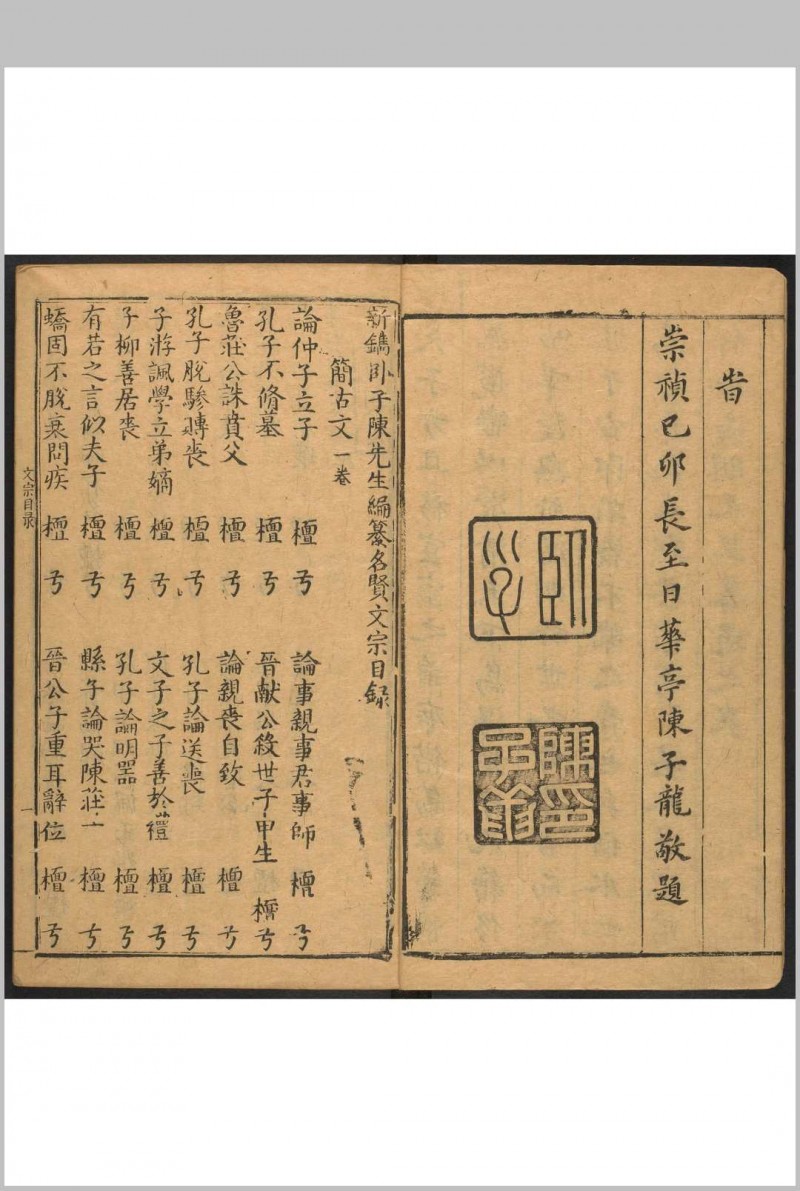 旹
崇禎己卯長至日華亭陳子龍敬題
臥子
陳子龍印
新鐫臥子陳先生編纂名賢文宗目錄
簡古文 一卷
論仲子立子 檀弓
論事親事君事師 檀弓
孔子不脩墓 檀弓
晉献公殺世子申生 檀弓
魯莊公誄賁父 檀弓
論親喪自致 檀弓
孔子脫驂賻喪 檀弓
孔子論送喪 檀弓
子游諷學立弟嫡 檀弓
文子之子善於禮 檀弓
子柳善居喪 檀弓
孔子論明器 檀弓
有若之言似夫子 檀弓
縣子論哭陳莊 檀弓
蟜固不脫衰問疾 檀弓
晉公子重耳辭位 檀弓
文宗目录
一